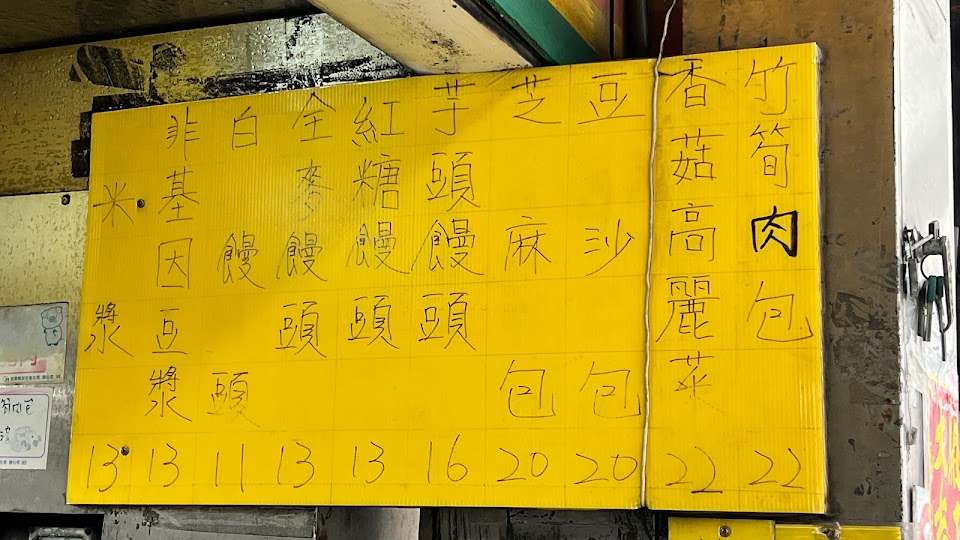 竹筍肉包 22
香菇高麗菜 22
豆沙包 20
芝麻包 20
芋頭饅頭 16
紅糖饅頭 13
全麥饅頭 13
白饅頭 11
非基因豆漿 13
米漿 13